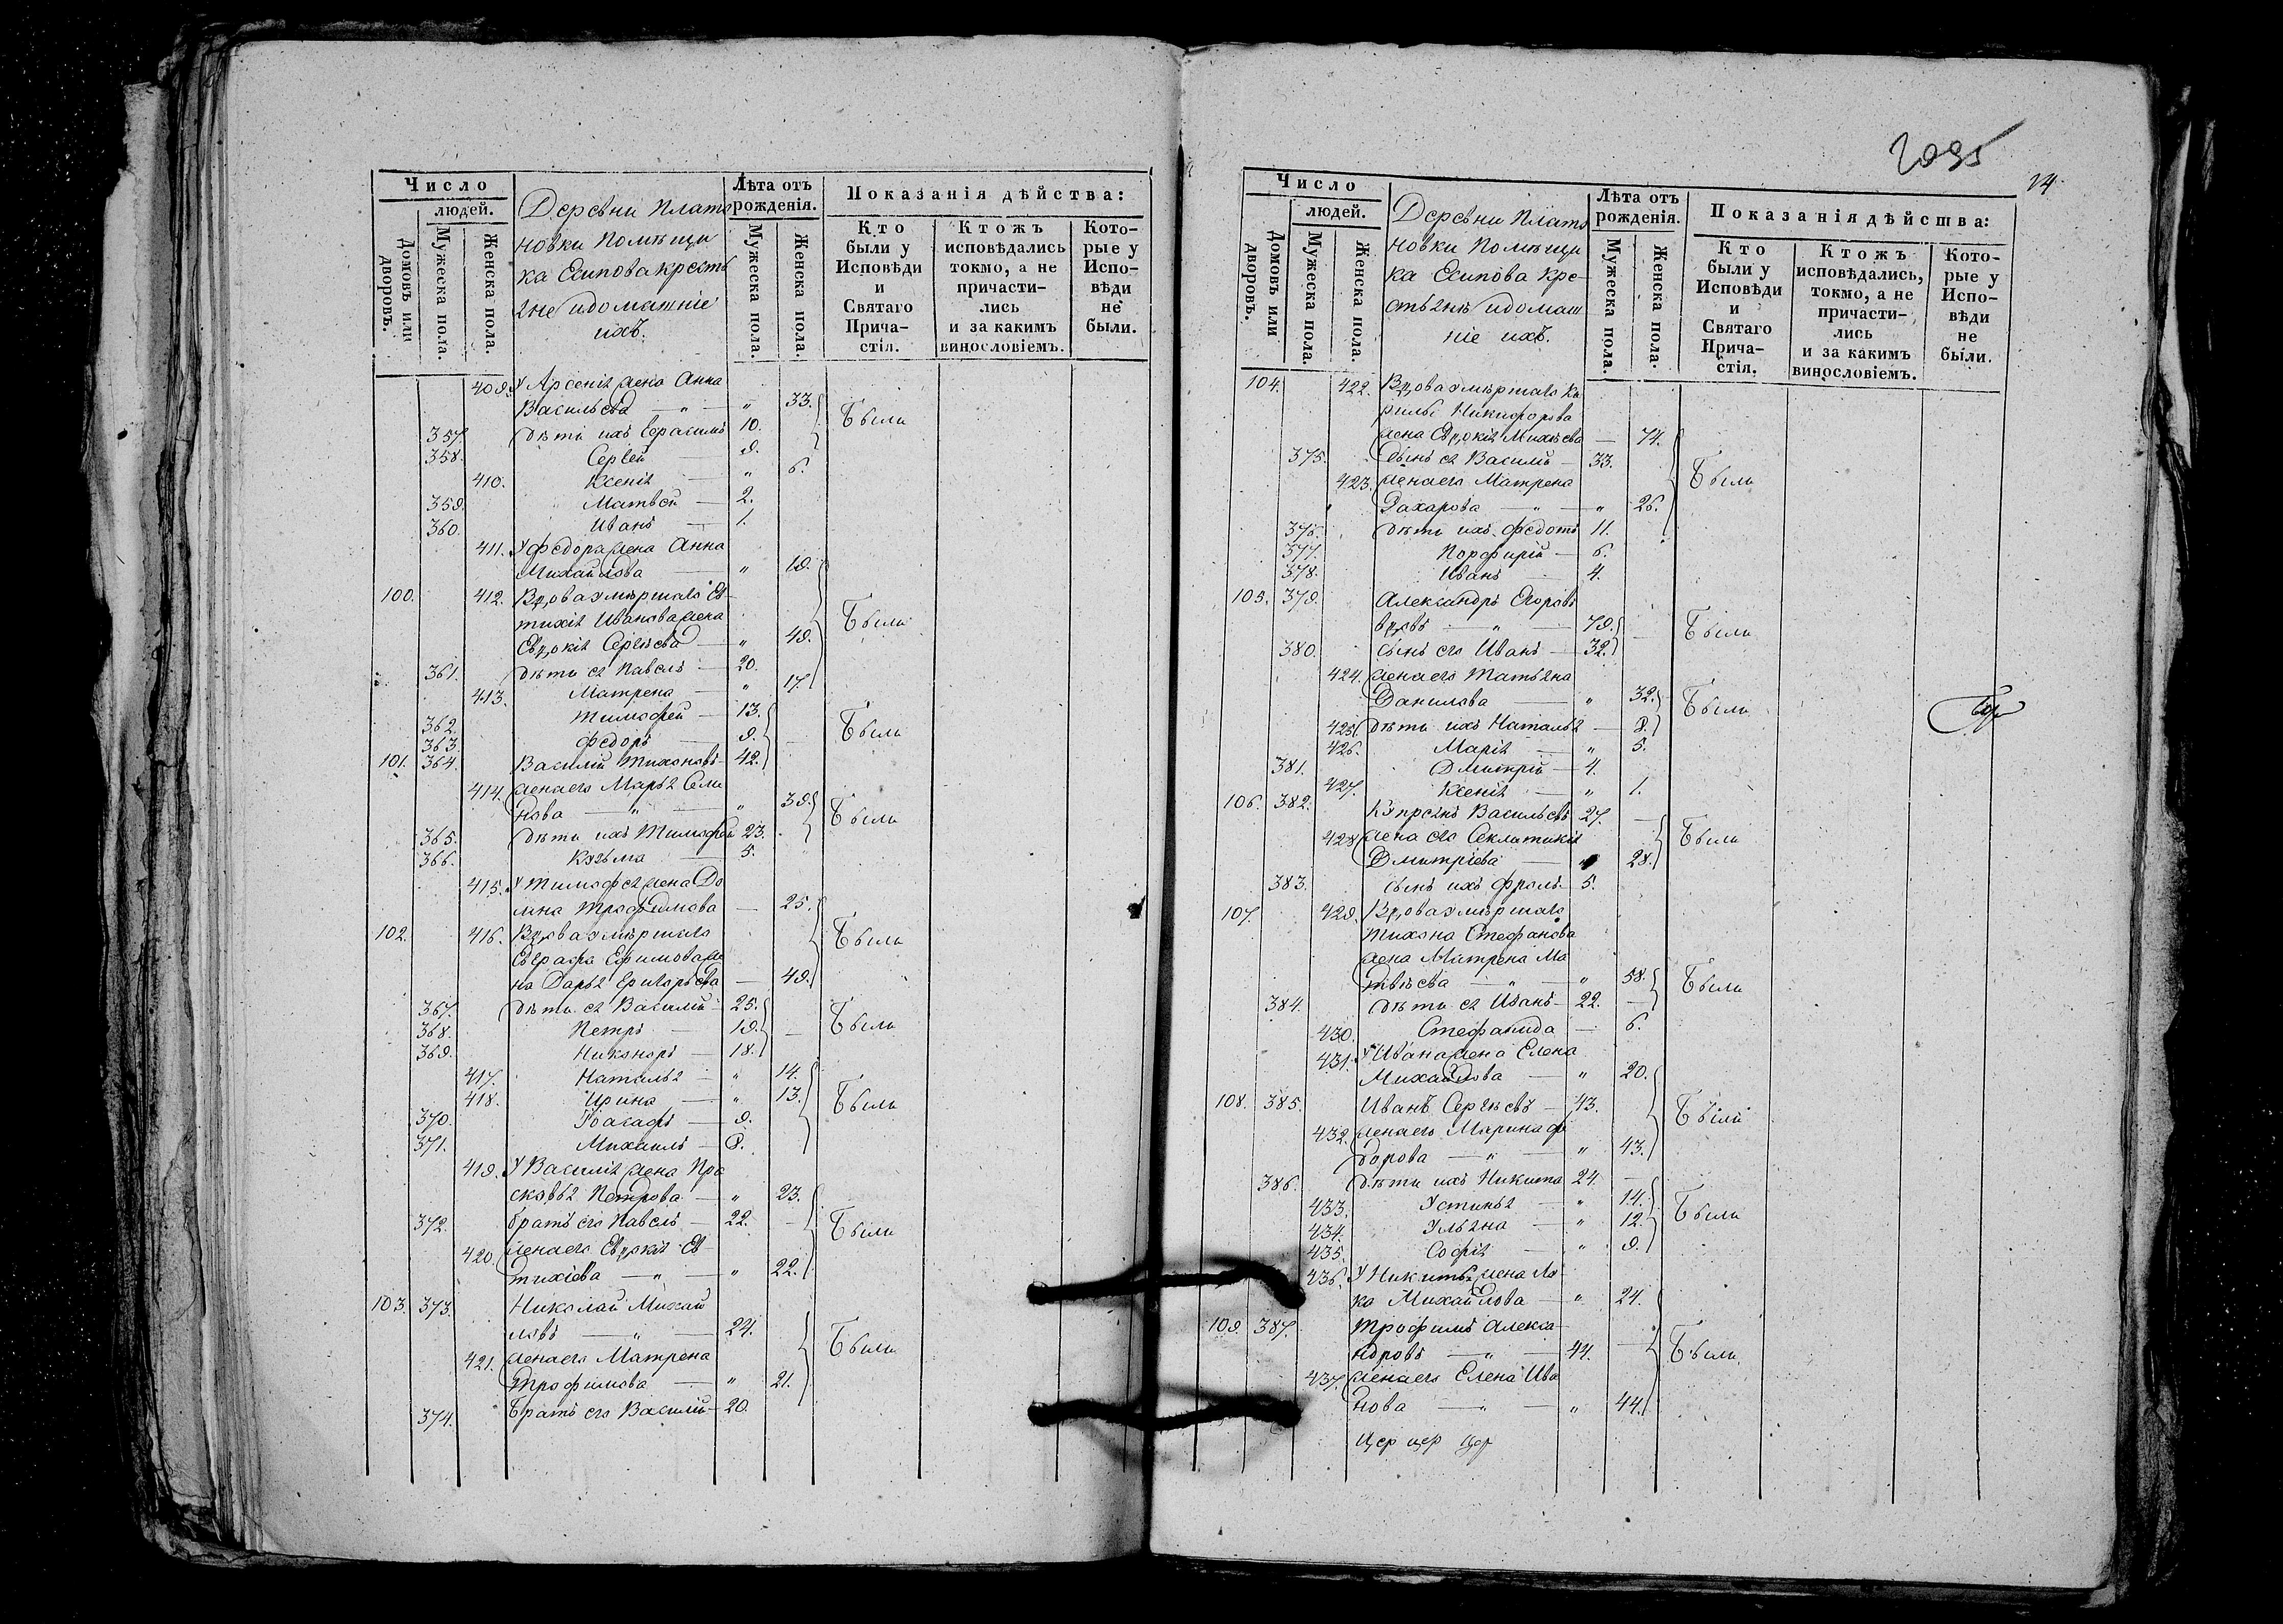 Число
людей.
Домовъ или дворовъ.
Мужеска пола.
Женска пола.
Деревни Плато
новки Помѣщи
ка Есипова крестъ
яне и домашніе
ихъ.
Лѣта отъ рожденія.
Мужеска пола.
Женска пола.
Показанія дѣйства:
Кто были у Исповѣди и Святаго Прича-стія.
Ктожъ исповѣдались токмо, а не причасти-лись и за какимъ винословіемъ.
Кото-рые у Испо-вѣди не были.
409. У Арсенія жена Анна
Васильева — " — " 33. Были
357. дѣти ихъ Герасимъ 10.
358. Сергей — 9.
410. Ксенія " 6.
359. Матвѣй — 2.
360. Иванъ — 1.
411. У Федора жена Анна
Михайлова — " 19.
100. 412. Вдова умѣршаго Ев-
тихія Иванова жена
Евдокія Сергѣева — " 49. Были
361. дѣти ея Павелъ — 20.
413. Матрена — " 17.
362. Тимофей — 13. Были
363. Федоръ — 9.
101. 364. Василій Тихоновъ — 42.
414. жена его Марья Семи
нова — " — " 39. Были
365. дѣти ихъ Тимофей 23.
366. Кузьма — 5.
415. У Тимофея жена До
мна Трофимова — 25.
102. 416. Вдова умѣршаго Были
Евграфа Ефимова же
на Дарья Григорьева — 49.
367. дѣти ея Василій 25.
368. Петръ — 19. — Были
369. Никоноръ — 18.
417. Наталья — " 14.
418. Ирина — " 13. Были
370. Іоасафъ — 9.
371. Михаилъ — 8.
419. У Василія жена Пра
сковья Петрова — " 23.
372. братъ его Павелъ — 22. — Были
420. жена его Евдокія Ев-
тихіева — " — " 22.
103. 373. Николай Михай
ловъ — " — 24. Были
421. жена его Матрена
Трофимова — " 21.
374. Братъ его Василій — 20.
2095
14.
Число
людей.
Домовъ или дворовъ.
Мужеска пола.
Женска пола.
Деревни Плато
новки Помѣщи
ка Есипова кре-
стьянѣ и домаш
ніе ихъ.
Лѣта отъ рожденія.
Мужеска пола.
Женска пола.
Показанія дѣйства:
Кто были у Исповѣди и Святаго Прича-стія.
Ктожъ исповѣдались, токмо, а не причасти-лись и за какимъ винословіемъ.
Кото-рые у Испо-вѣди не были.
104. 422. Вдова умѣршаго Ки
рилы Никифорова
жена Евдокія Михѣева — 74.
375. Сынъ ея Василій — 33. Были
423. жена его Матрена
Захарова — " — " 26.
376. дѣти ихъ Федотъ 11.
377. Порфирій — 6.
378. Иванъ 4.
105. 379. Александръ Егоровъ
вдовъ — " — 79. — Были
380. сынъ его Иванъ — 32.
424. жена его Татьяна
Данилова — " 32. Были
425. дѣти ихъ Наталья — 8.
426. Марія — " 5.
381. Дмитрій — 4.
427. Ксенія — " 1.
106. 382. Купреянъ Васильевъ 27. —
428. жена его Секлитикія Были
Дмитріева — " 28.
383. сынъ ихъ Фролъ 5.
107. 429. Вдова умѣршаго
Тихона Стефанова
жена Матрена Ма
твѣева — " — " 58. Были
384. дѣти ея Иванъ — 22. —
430. Стефанида — 6.
431. У Ивана жена Елена
Михайлова — " 20.
108. 385. Иванъ Сергѣевъ — 43. Были
432. жена его Марина Фе
дорова — " — " 43.
386. дѣти ихъ Никита 24. —
433. Устинья — " 14. Были
434. Ульяна — " 12.
435. Софія — " 9.
436. У Никиты жена Лу-
ка Михайлова — " 24.
109. 387. Трофимъ Алекса-
ндровъ — " — 44. — Были
437. жена его Елена Ива
нова — " — " 44.
Цер цер цер